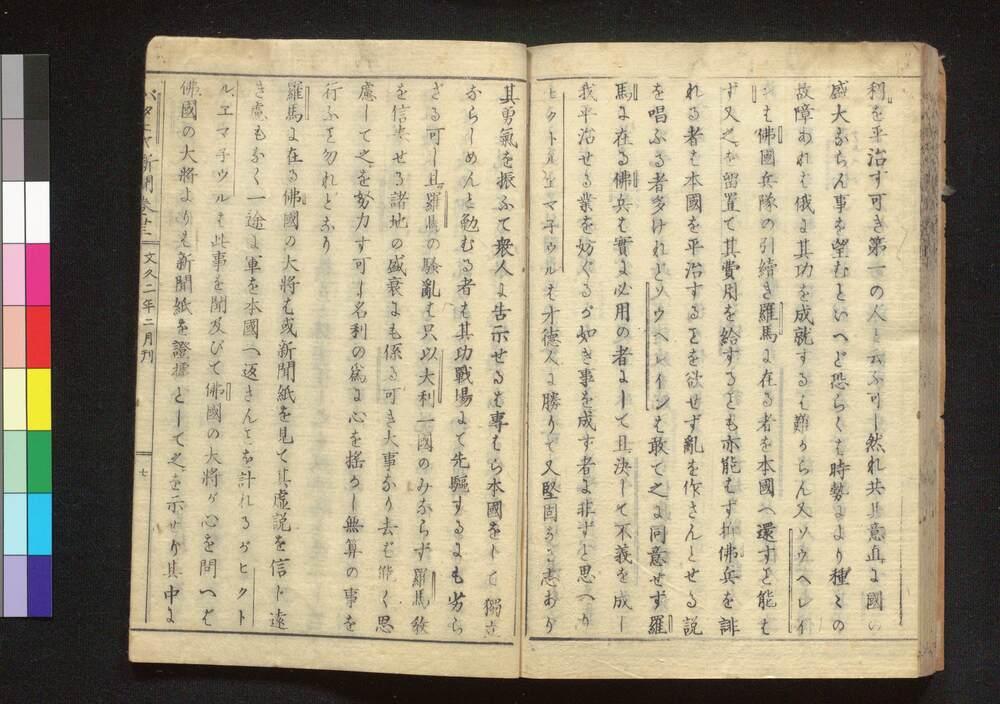 利を平治す可き第一の人と云ふ可し然れ共其意直に國の
盛大ならん事を望むといへど恐らくは時勢により種々の
故障あれは俄に其功を成就するは難からん又ソウヘレイ
ンは佛國兵隊の引續き羅馬に在る者を本國へ還すと能は
ず又之を留置て其費用を給するとも亦能はず扨佛兵を誹
れる者は本國を平治するとを欲せず亂を作さんとせる説
を唱ふる者多けれどソウヘレインは敢て之に同意せず羅
馬に在る佛兵は實に必用の者にして且決して不義を成し
我平治せる業を妨ぐるが如き事を成す者に非ずと思へり
ヒクトルエマ子ウルは才德人に勝りて又堅固なる志あり
其勇氣を振ふて衆人に告示せるは專はら本國をして獨立
ならしめんと勉むる者は其功戰場にて先驅するにも劣ら
ざる可し且羅馬の騷亂は只以大利一國のみならず羅馬敎
を信ぜる諸地の盛衰にも係る可き大事なり去ば能く思
慮して之を努力す可し名利の爲に心を搖かし無算の事を
行ふと勿れとなり
羅馬に在る佛國の大將は或新聞紙を見て其虛說を信じ遠
き慮もなく一途に軍を本國へ返さんとを計れるがヒクト
ルヱマ子ウルは此事を聞及びて佛國の大將が心を問へば
佛國の大將よりは新聞紙を證據として之を示せり其中に
バタヒヤ新聞卷十二 文久二年二月刊 七